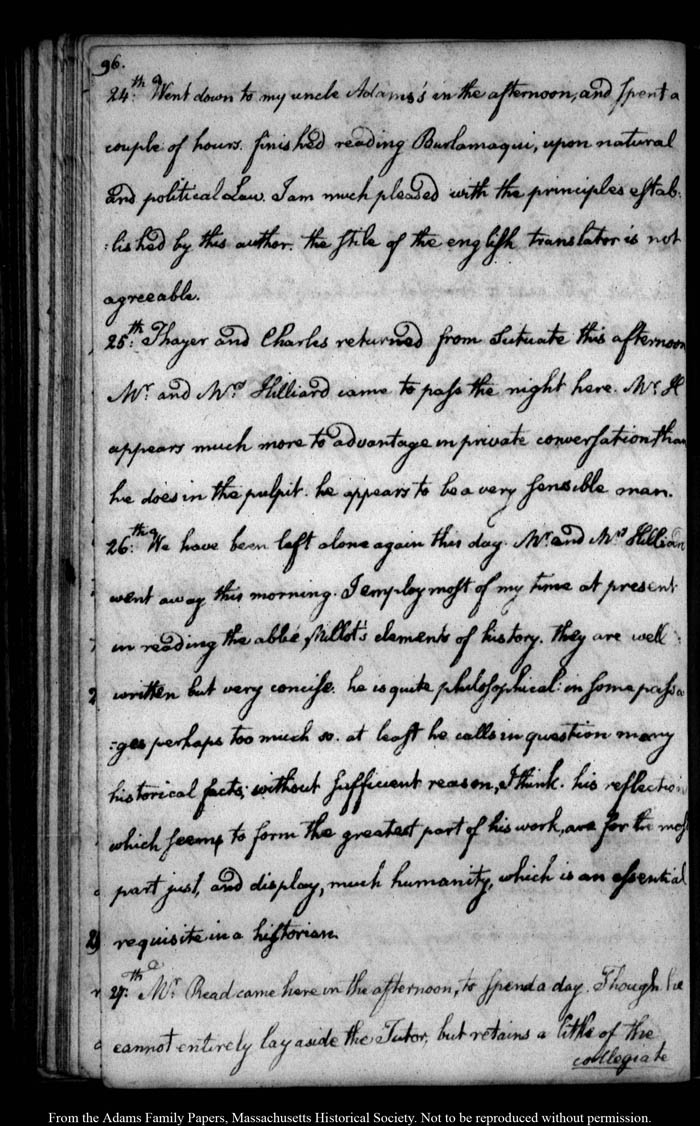 96.
24.th Went down to my uncle Adams's in the afternoon, and spent a
couple of hours. finished reading Burlamaqui, upon natural
and political Law. I am much pleased with the principles estab-
:lished by this author. the stile of the english translator is not
agreeable.
25.th Thayer and Charles returned from Scituate this afternoon
Mr. and Mrs. Hilliard came to pass the night here. Mr. H
appears much more to advantage in private conversation than
he does in the pulpit. he appears to be a very sensible man.
26.th We have been left alone again this day. Mr. and Mrs. Hilliard
went away this morning. I employ most of my time at present
in reading the abbé, Millot's elements of history. they are well
written but very concise. he is quite philosophical: in some passa
:ges perhaps too much so. at least he calls in question many
historical facts; without sufficient reason, I think. his reflections
which seems to form the greatest part of his work, are for the most
part just, and display, much humanity, which is an essential
requisite in a historian.
27.th Mr. Read came here in the afternoon, to spend a day. Though he
cannot entirely lay aside the Tutor, but retains a little of the
collegiate
From the Adams Family Papers, Massachusetts Historical Society. Not to be reproduced without permission.